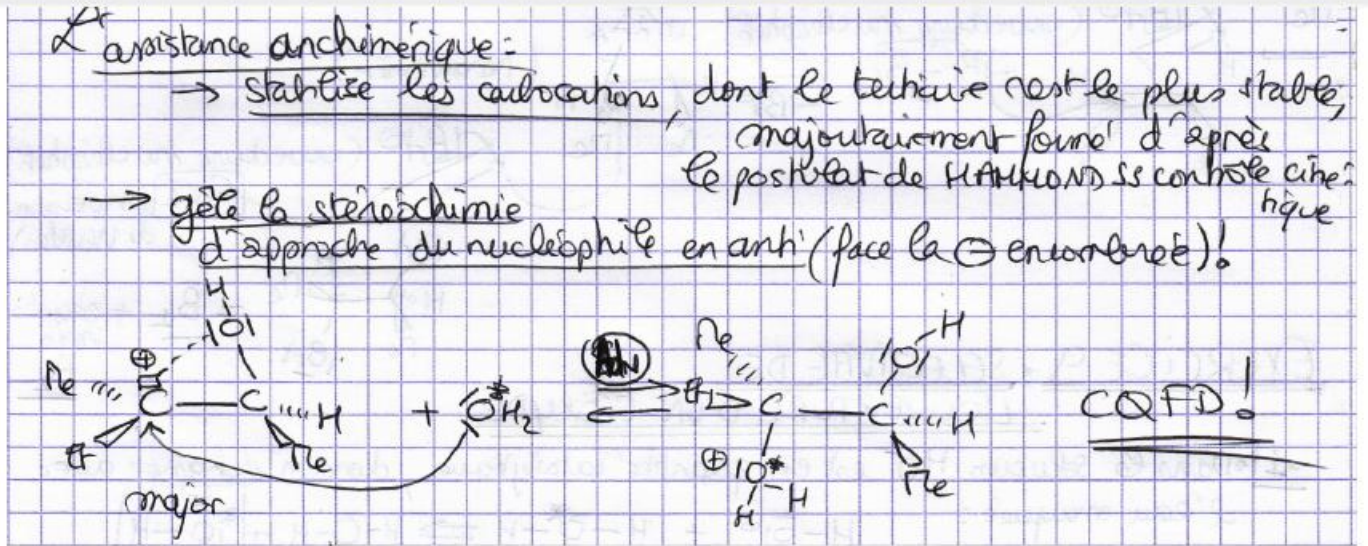 L'assistance anchimérique :
→ stabilise les carbocations, dont le tertiaire est le plus stable,
majoritairement formé d'après
le postulat de HAMMOND ss contrôle ciné-
tique
→ gèle la stéréochimie
d'approche du nucléophile en anti (face la ⊖ encombrée) !
H
|O|
⊕
Me C C H + O*H2 AN Me Et C C H CQFD !
Et Me
major
|O| H
⊕ |O* H
H
Me